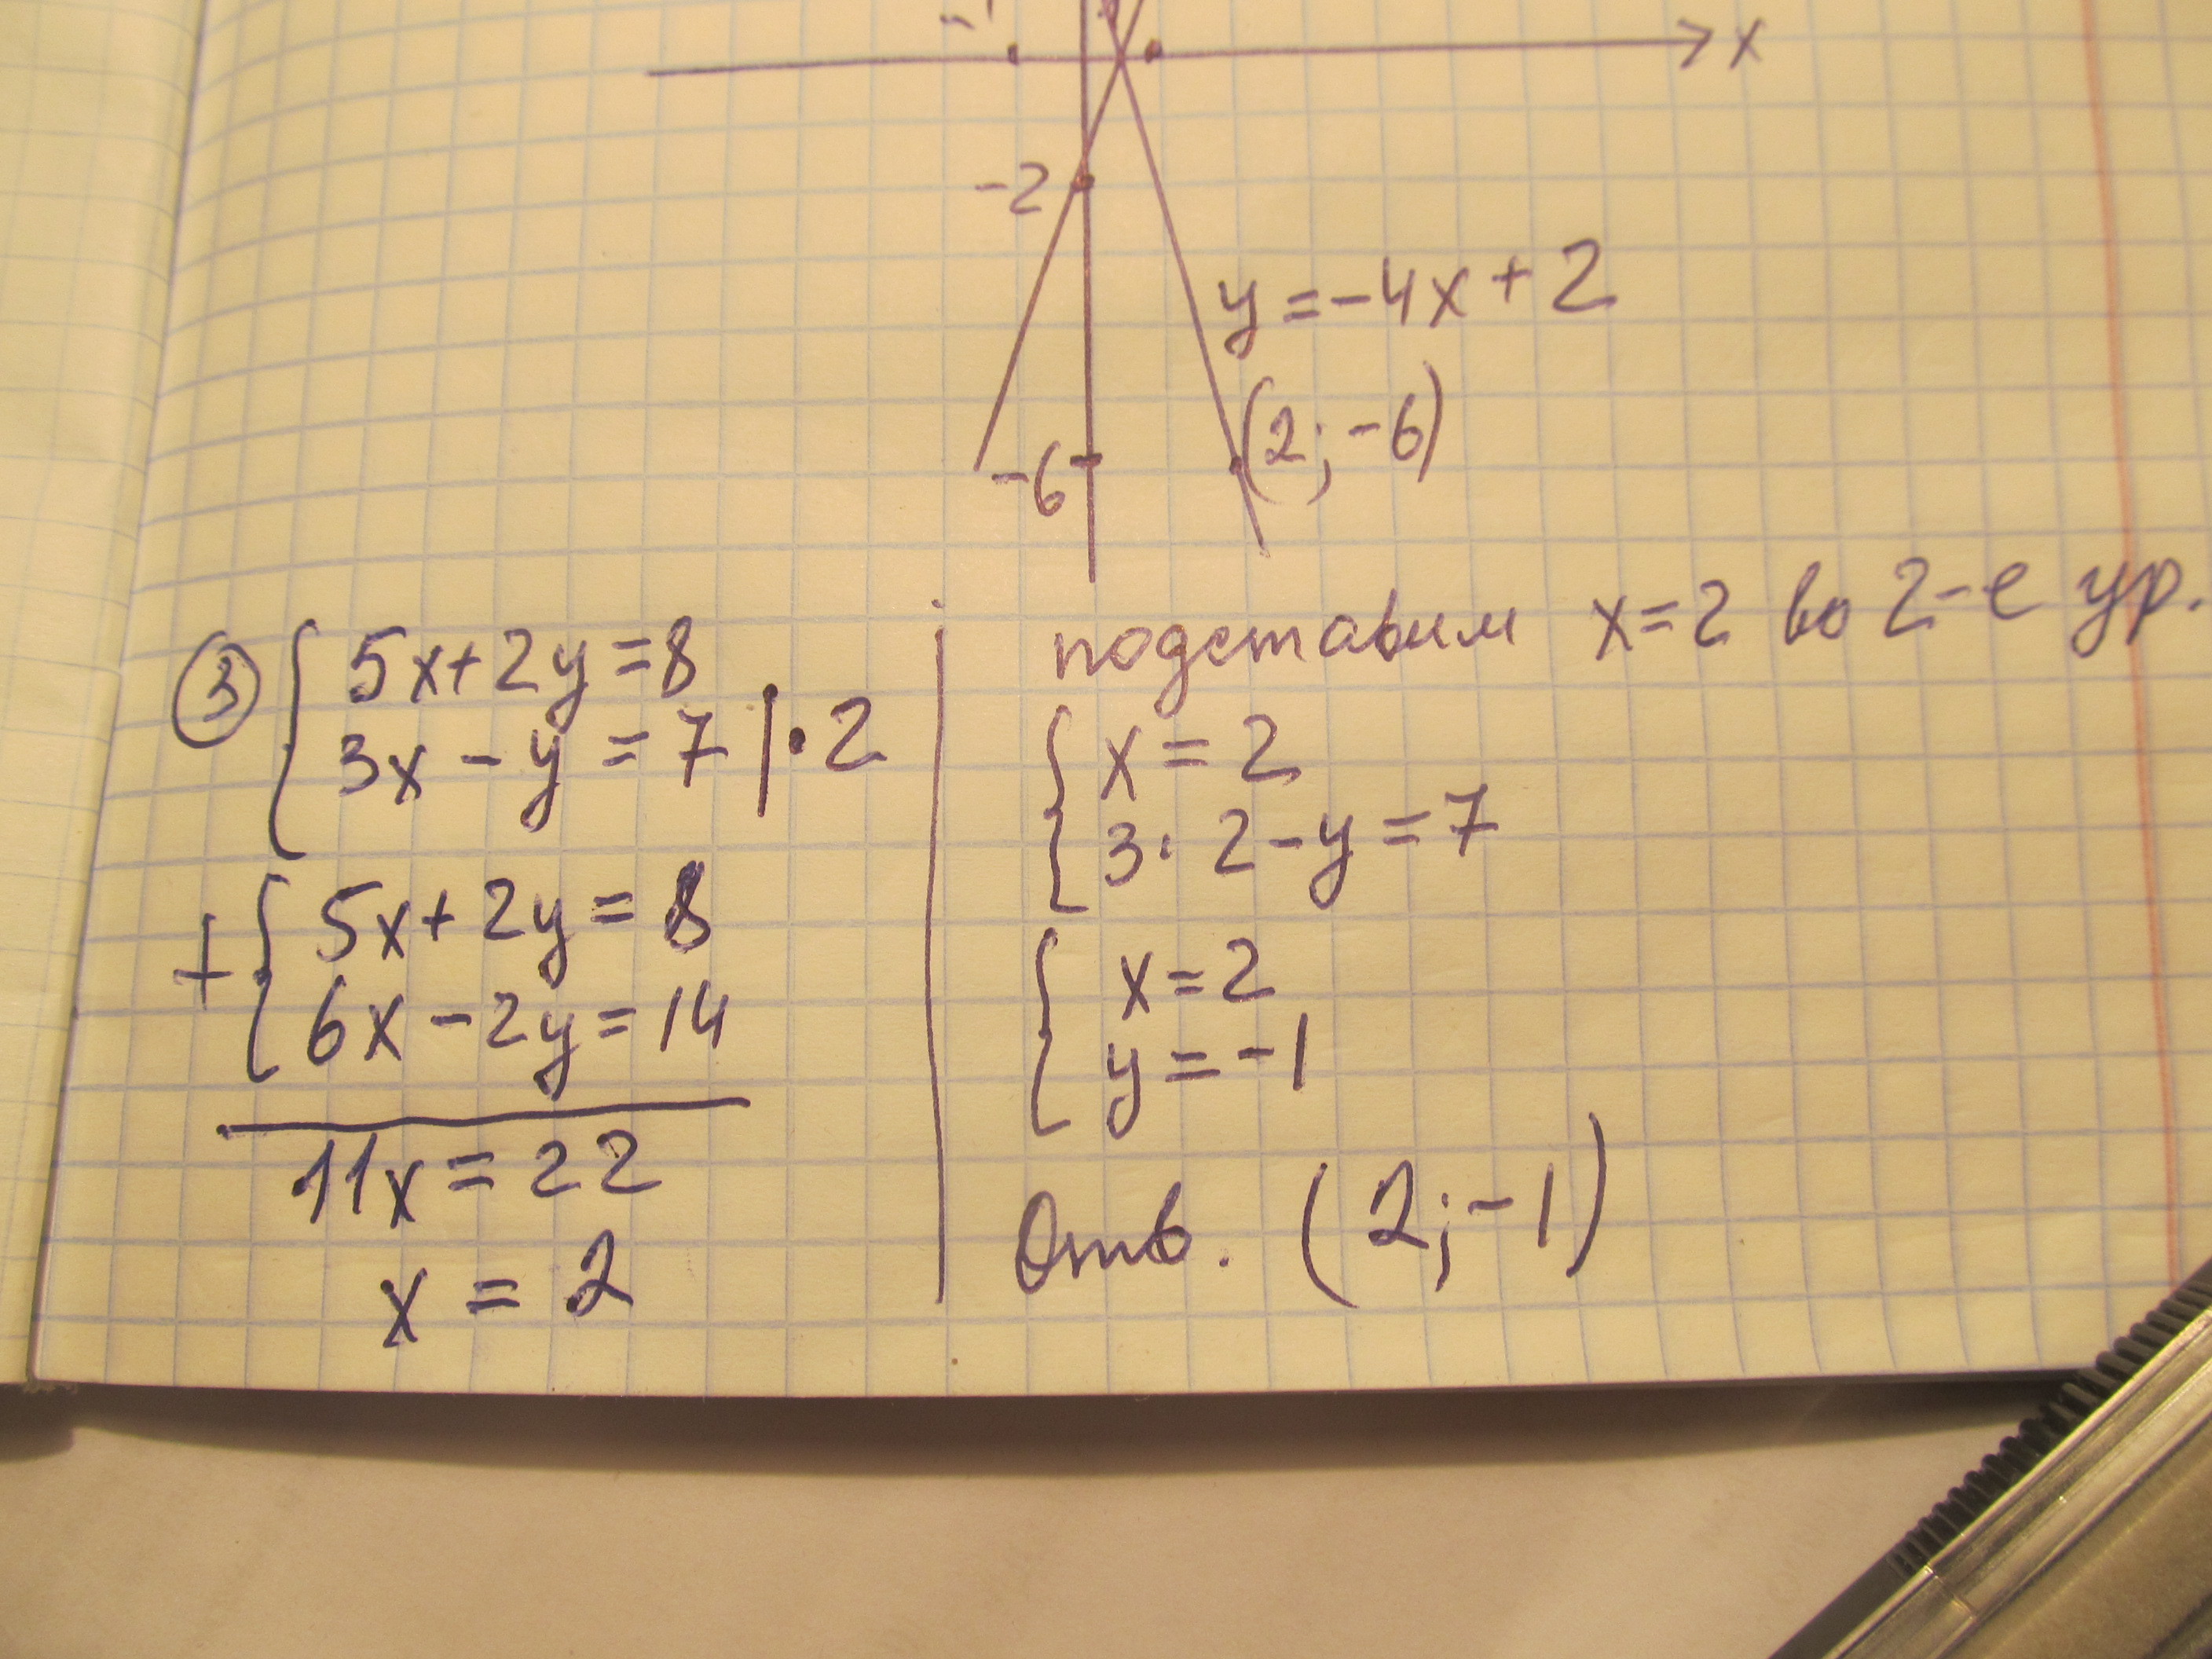 -1
x
-2
y = -4x + 2
(2; -6)
-6
3
5x + 2y = 8
3x - y = 7 | · 2
+
5x + 2y = 8
6x - 2y = 14
11x = 22
x = 2
подставим x = 2 во 2-е ур.
x = 2
3 · 2 - y = 7
x = 2
y = -1
Отв. (2; -1)